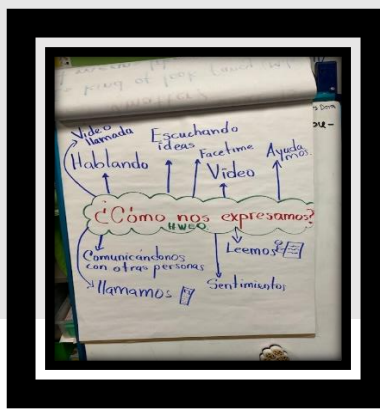 Video
llamada
Hablando
Escuchando
ideas
Facetime
Video
Ayuda
mos.
¿Cómo nos expresamos?
HWEO
Comunicándonos
con otras personas
Leemos
llamamos
Sentimientos